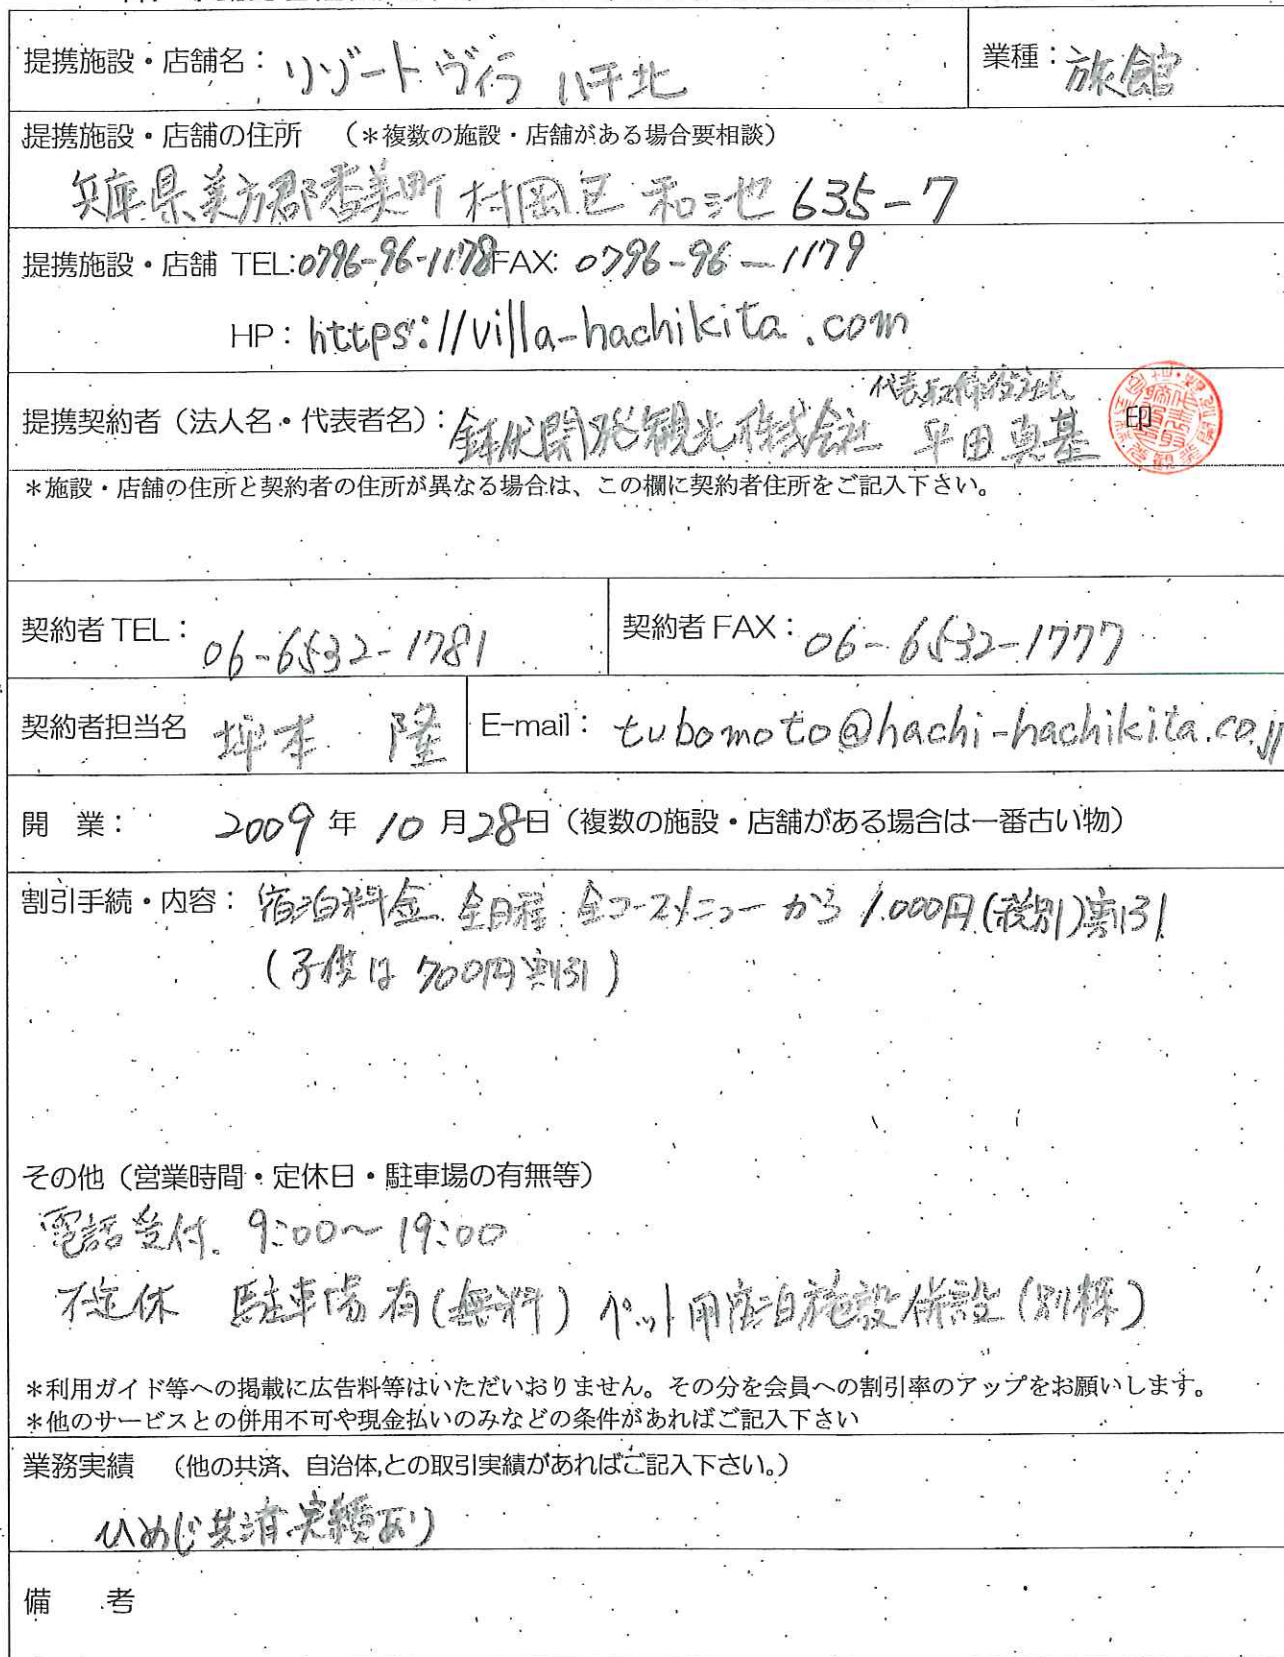 提携施設・店舗名： リゾートヴィラ ハチ北
業種： 旅館
提携施設・店舗の住所 （＊複数の施設・店舗がある場合要相談）
兵庫県美方郡香美町村岡区和池635-7
提携施設・店舗 TEL:0796-96-1178 FAX: 0796-96-1179
HP：https://villa-hachikita.com
代表取締役社長
提携契約者（法人名・代表者名）：鉢伏開発観光株式会社 平田真基 印
＊施設・店舗の住所と契約者の住所が異なる場合は、この欄に契約者住所をご記入下さい。
契約者 TEL： 06-6532-1781
契約者 FAX：06-6532-1777
契約者担当名 坪本 隆
E-mail： tubomoto@hachi-hachikita.co.jp
開 業： 2009年 10月28日（複数の施設・店舗がある場合は一番古い物）
割引手続・内容： 宿泊料金 全日程 全コースメニューから 1.000円(税別)割引
(子供は 700円割引)
その他（営業時間・定休日・駐車場の有無等）
電話受付. 9:00〜19:00
不定休 駐車場有(無料) ペット用宿泊施設併設(別棟)
＊利用ガイド等への掲載に広告料等はいただいおりません。その分を会員への割引率のアップをお願いします。
＊他のサービスとの併用不可や現金払いのみなどの条件があればご記入下さい
業務実績 （他の共済、自治体,との取引実績があればご記入下さい。）
ひめじ共済実績あり
備 考